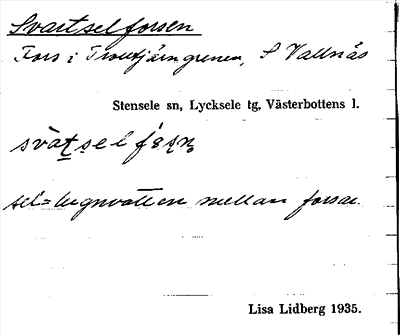 Svartselforsen
Fors i Trolltjärngrenen, S Vallnäs
Stensele sn, Lycksele tg, Västerbottens l.
sel = lugnvatten mellan forsar.
Lisa Lidberg 1935.